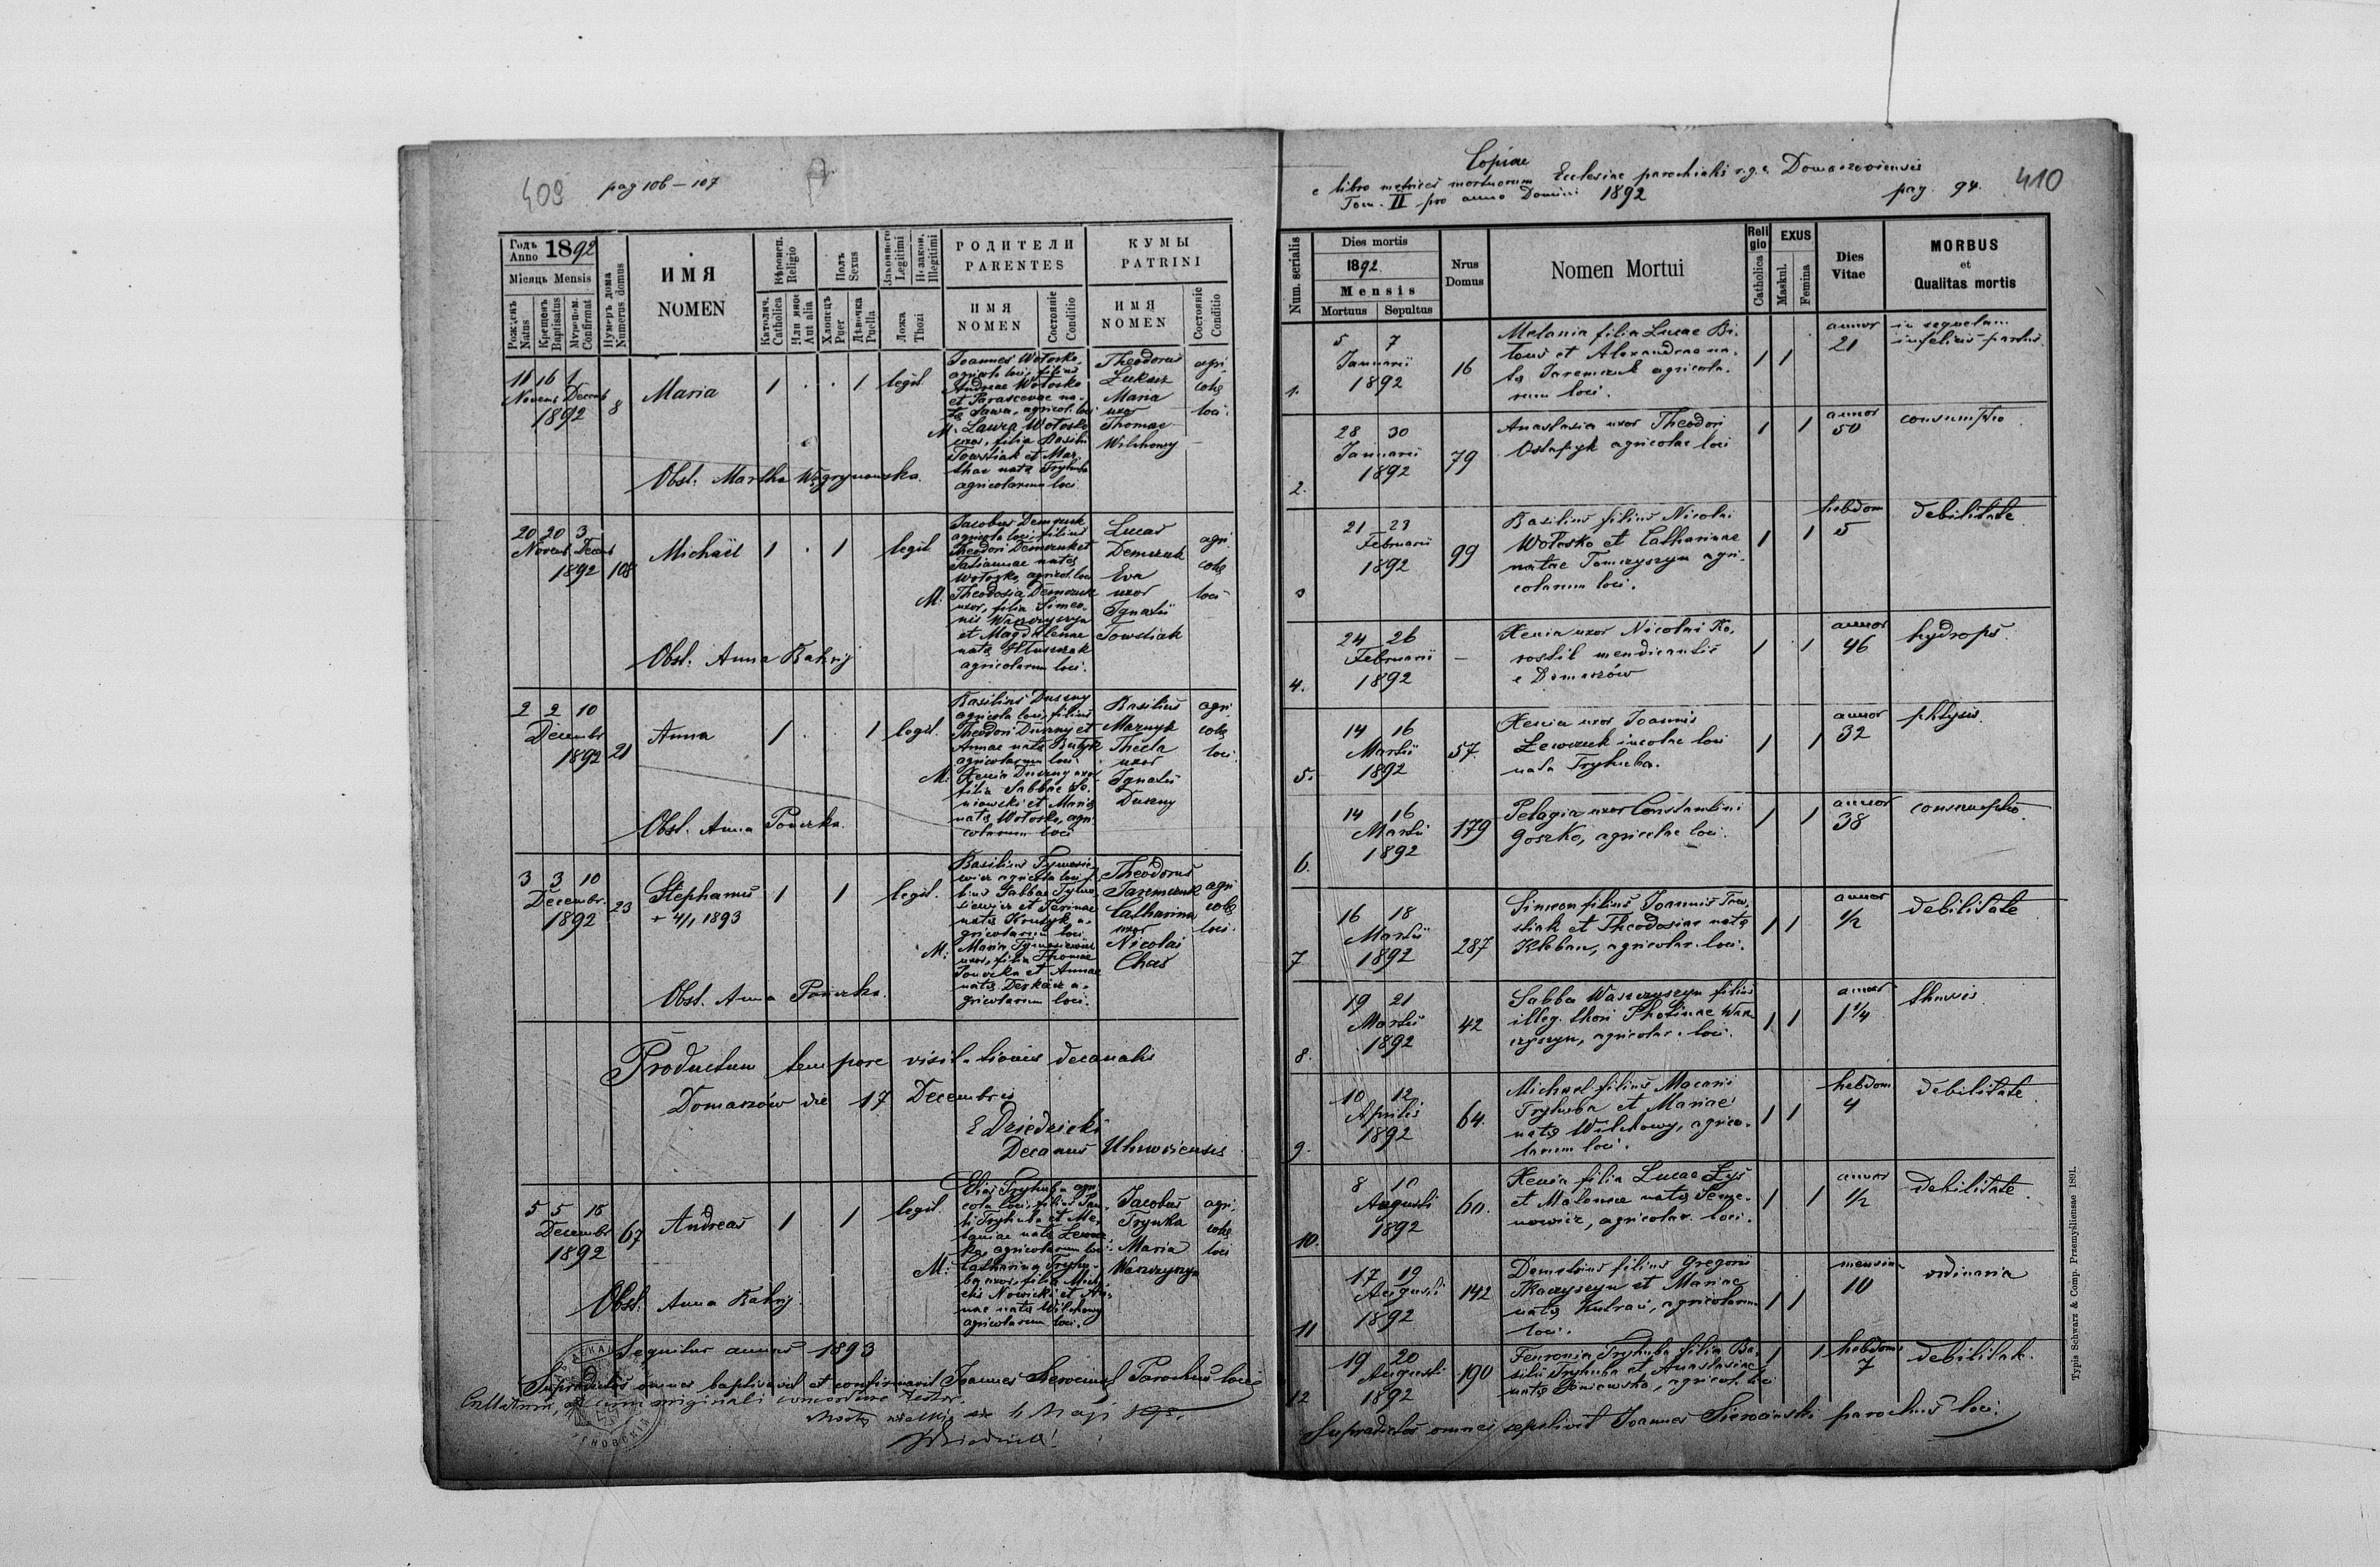 409 pag 106 – 107
Годъ
Anno 1892
Місяць Mensis
Рожденъ
Natus
Крещенъ
Baptisatus
Мѵропом.
Confirmat
Нумеръ дома
Numerus domus
ИМЯ
NOMEN
Вѣроисп.
Religio
Католич.
Catholica
Или иное
Aut alia
Полъ
Sexus
Хлопець
Puer
Дѣвочка
Puella
Законного
Legitimi
Незакон.
Illegitimi
Ложа
Thori
РОДИТЕЛИ
PARENTES
ИМЯ
NOMEN
Состояніе
Conditio
КУМЫ
PATRINI
ИМЯ
NOMEN
Состояніе
Conditio
11 16 1
Novemb Decemb
1892
8
Maria
1 . . 1 legit.
Joannes Wołosko,
agricola loci, filius
Andreae Wołosko
et Parascevae na-
tę Sawa, agricol. loci
M. Laura Wołosko
uxor, filia Basilii
Towstiak et Mar-
thae natę Tryhuba
agricolarum loci.
Theodorus
Łukasz
Maria
uxor
Thomae
Wilchowy
agri
colę
loci.
Obst. Martha Węgrynowska.
20 20 3
Novemb. Decemb
1892
108
Michaël
1 . 1 legit
Jacobus Demczuk
agricola loci, filius
Theodori Demczuk et
Tatiannae natę
Wołosko, agricol. loci
M: Theodosia Demczuk
uxor, filia Simeo-
nis Waszczyszyn
et Magdalenae
natę Hłuszczak
agricolarum loci.
Lucas
Demczuk
Eva
uxor
Ignatii
Towstiak
agri
colę
loci
Obst. Anna Bahrij
2 2 10
Decembr
1892
21
Anna
1 . . 1 legit.
Basilius Duszny
agricola loci, filius
Theodori Duszny et
Annae natę Butyk
agricolarum loci
M: Xenia Duszny uxor
filia Sabbae So-
niowski et Marię
natę Wołosko, agri-
colarum loci
Basilius
Maznyk
Thecla
uxor
Ignatii
Duszny
agri
colę
loci.
Obst. Anna Ponczka.
3 3 10
Decembr.
1892
23
Stephanus
+ 4/1 1893
1 1 legit.
agricolarum loci.
Theodorus
Jaremczuk
Catharina
uxor
Nicolai
Chaś
agri
colę
loci.
Obst. Anna Ponczka.
Productum tempore visitationis decanalis
Domaszów die 17 Decembris
E Dziedzicki
Decanus Uhnoviensis
5 5 18
Decembr
1892
67
Andreas
1 1 legit.
Elias Tryhuba agri-
cola loci, filius Pau-
li Tryhuba et Me-
laniae natę Lewcz-
ka, agricolarum loci.
M: Catharina Tryhu-
ba uxor, filia Mich-
aelis Nowicki et An-
nae natę Wilchowy
agricolarum loci.
Jacobus
Trynka
Maria
Waszczyszyn
agri,
colę
loci
Obst. Anna Bahrij.
Sequitur annus 1893
Supradictos omnes baptisavit et confirmavit Joannes Sierocinski Parochus loci
Collatum, et cum originali concordare testor.
Copiae
e libro metrices mortuorum Ecclesiae parochialis r.g.c. Domaszoviensis
Tom. II pro anno Domini 1892 pag. 94. 410
Num. serialis
Dies mortis
1892.
Mensis
Mortuus Sepultus
Nrus
Domus
Nomen Mortui
Religio
Catholica
EXUS
Maskul.
Femina
Dies
Vitae
MORBUS
et
Qualitas mortis
1. 5 7
Januarii
1892
16
Melania filia Lucae Bi-
lous et Alexandrae na-
tę Jaremczuk agricola-
rum loci.
1 1
annor
21
in sequelam
infelicis partus.
2. 28 30
Januarii
1892
79
Anastasia uxor Theodori
Ostapyk agricolae loci
1 1
annor
50
consumptio.
3 21 23
Februarii
1892
99
Basilius filius Nicolai
Wołosko et Catharinae
natae Tomczyszyn agri-
colarum loci.
1 1
hebdom
5
debilitate
4. 24 26
Februarii
1892
—
Xenia uxor Nicolai Ko-
rostil mendicantis
e Domaszów
1 1
annor
46
hydrops.
5. 14 16
Martii
1892
57.
Xenia uxor Joannis
Lewczuk incolae loci
nata Tryhuba.
1 1
annor
32
phtysis.
6. 14 16
Martii
1892
179
Pelagia uxor Constantini
Goszko, agricolae loci.
1 1
annor
38
consumptio.
7 16 18
Martii
1892
287
Simeon filius Joannis Tow-
stiak et Theodosiae natę
Kleban, agricolar. loci.
1 1
annor
1/2
debilitate
8. 19 21
Martii
1892
42
Sabba Waszczyszyn filius
illeg. thori Photinae Wasz-
czyszyn, agricolar. loci.
1 1
annor
1 1/4
thussis.
9. 10 12.
Aprilis
1892
64.
Michael filius Macarii
Tryhuba et Mariae
natę Wilchowy, agrico-
larum loci.
1 1
hebdom
4
debilitate.
10. 8 10
Augusti
1892
60.
Xenia filia Lucae Łyś
et Malaniae natę Seme-
nowicz, agricolar. loci.
1 1
annor
1/2
debilitate.
11 17 19
Augusti
1892
142
Demetrius filius Gregorii
Tkaczyszyn et Mariae
natę Kudraw, agricolarum
loci.
1 1
mensium
10
ordinaria
12 19 20
Augusti
1892
190
Fenronia Tryhuba filia Ba-
silii Tryhuba et Anastasiae
natę Soniowska, agricol. loci
1 1
hebdom
7
debilitate.
Supradictos omnes sepelivit Joannes Sierocinski parochus loci.
Typis Schwarz & Comp. Przemysliensae 1891.